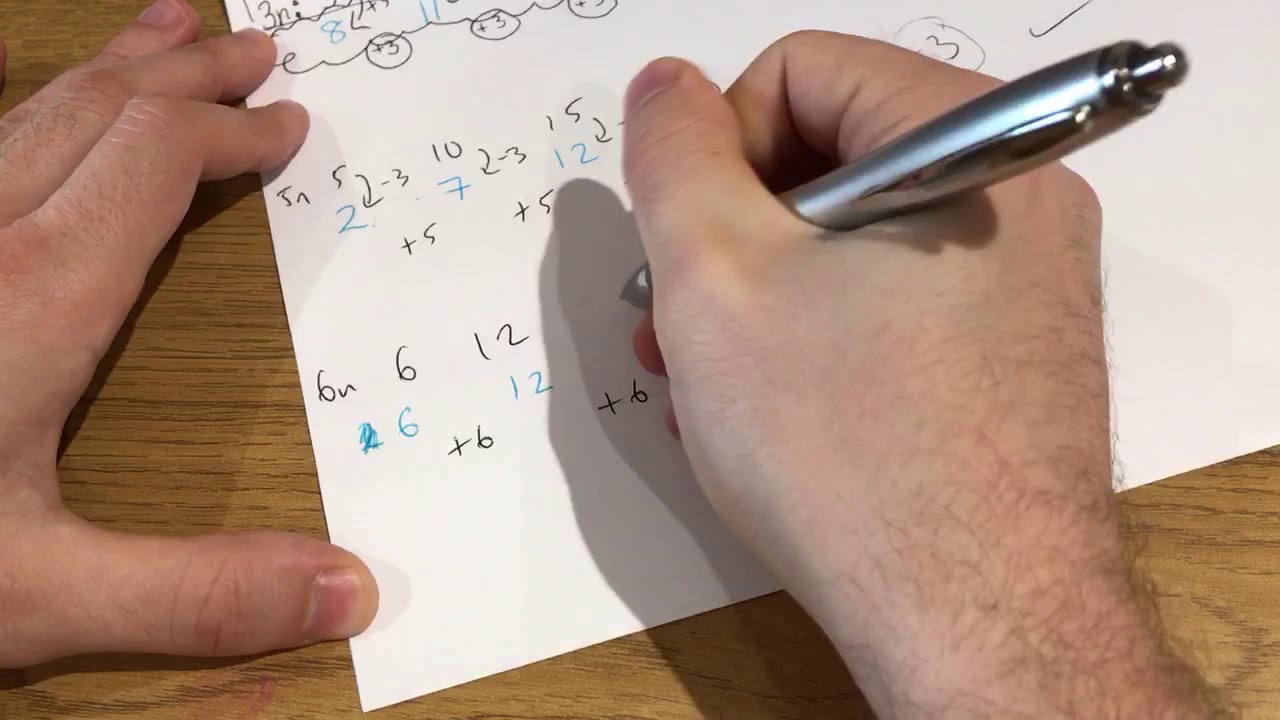 3n
8 11
+3 +3 +3
3
5 10 15
5n -3 -3
2 7 12
+5 +5
6n 6 12
6 12
+6 +6